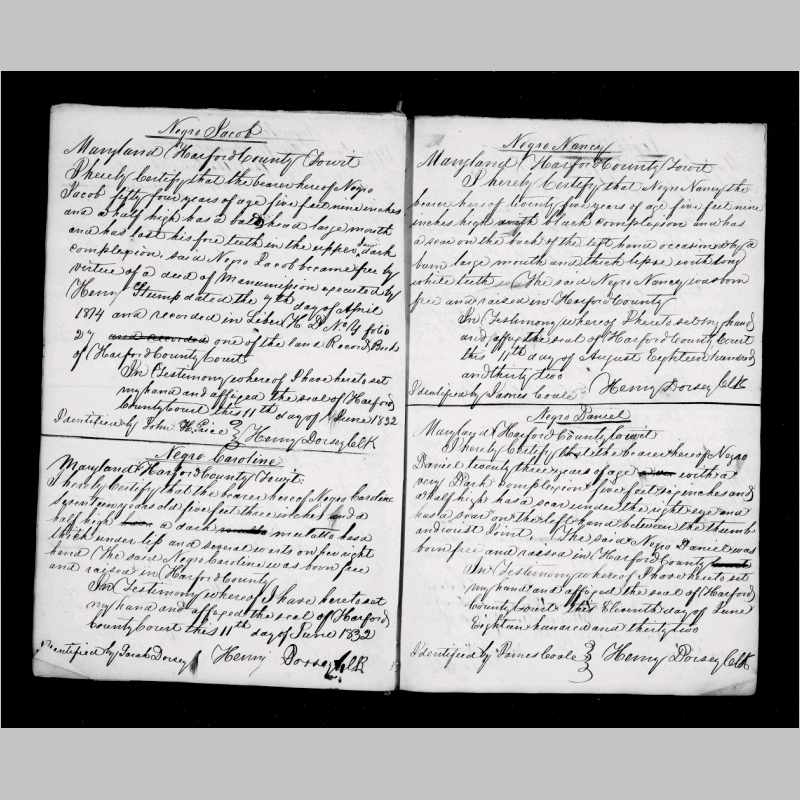 Negro Jacob
Maryland Harford County Towit
I hereby Certify that the bearer hereof Negro
Jacob fifty four years of age five feet nine inches
and a half high has a bald head large mouth
and has lost his fore teeth in the upper Jaw dark
complexion. said Negro Jacob became free by
virtue of a deed of Manumission executed by
Henry Stump dated the 7th day of April
1814 and recorded in Liber H D No Y folio
27 and recorded one of the land Record Books
of Harford County Court
In Testimony whereof I have hereto set
my hand and affixed the seal of Harford
County Court this 11th day of June 1832
Identified by John W. Price } Henry Dorsey Clk
Negro Caroline
Maryland Harford County Towit
I hereby Certify that the bearer hereof Negro Caroline
Seventeen years old five feet three inches and a
half high a dark mulatto has a
thick under lip and several warts on her right
hand The said Negro Caroline was born free
and raised in Harford County
In Testimony whereof I have hereto set
my hand and affixed the seal of Harford
County Court this 11th day of June 1832
Identified by Sarah Dorsey Henry Dorsey Clk
Negro Nancy
Maryland Harford County Towit
I hereby Certify that Negro Nancy the
bearer hereof twenty five years of age five feet nine
inches high black complexion and has
a scar on the back of the left hand occasioned by a
burn large mouth and thick lips with long
white teeth The said Negro Nancy was born
free and raised in Harford County
In Testimony whereof I hereto set my hand
and affix the seal of Harford County Court
this 11th day of August Eighteen hundred
and thirty two
Identified by James Coale Henry Dorsey Clk
Negro Daniel
Maryland Harford County Towit
I hereby Certify that the bearer hereof Negro
Daniel twenty three years of age with a
very Dark complexion five feet six inches and
a half high has a scar under the right eye and
has a scar on the left hand between the thumb
and wrist Joint. The said Negro Daniel was
born free and raised in Harford County
In Testimony whereof I have hereto set
my hand and affixed the seal of Harford
County Court this Eleventh day of June
Eighteen hundred and thirty two
Identified by James Coale } Henry Dorsey Clk